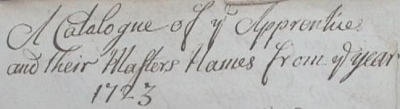 A Catalogue of ye Apprentices
and their Masters Names from ye year
1723